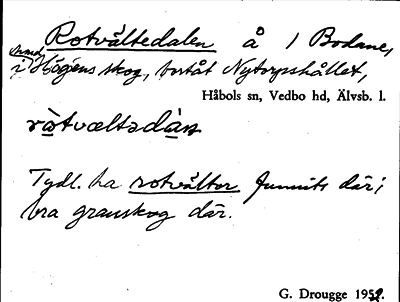 Rotvältedalen å 1 Bodane,
i Högens skog, bortåt Nytorpshållet,
Håbols sn, Vedbo hd, Älvsb. l.
ròtvæltədàn
Tydl. ha rotvältor funnits där;
bra granskog där.
G. Drougge 1952.